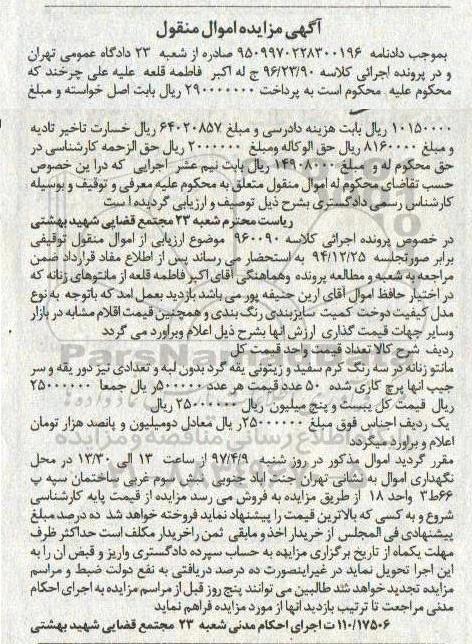 آگهی مزایده اموال منقول
بموجب دادنامه ۹۵۰۹۹۷۰۲۲۸۳۰۰۱۹۶ صادره از شعبه ۲۳ دادگاه عمومی تهران
و در پرونده اجرائی کلاسه ۹۶/۲۳/۹۰ ج له اکبر فاطمه قلعه علیه علی چرخند که
محکوم علیه محکوم است به پرداخت ۲۹۰۰۰۰۰۰۰ ریال بابت اصل خواسته و مبلغ
۱۰۱۵۰۰۰۰ ریال بابت هزینه دادرسی و مبلغ ۶۴۰۲۰۸۵۷ ریال خسارت تاخیر تادیه
و مبلغ ۸۱۶۰۰۰۰ ریال حق الوکاله ومبلغ ۲۰۰۰۰۰۰ ریال حق الزحمه کارشناسی در
حق محکوم له و مبلغ ۱۴۹۰۸۰۰۰ ریال بابت نیم عشر اجرایی که دراین خصوص
حسب تقاضای محکوم له اموال منقول متعلق به محکوم علیه معرفی و توقیف و بوسیله
کارشناس رسمی دادگستری بشرح ذیل توصیف و ارزیابی گردیده است
ریاست محترم شعبه ۲۳ مجتمع قضایی شهید بهشتی
در خصوص پرونده اجرائی کلاسه ۹۶۰۰۹۰ موضوع ارزیابی از اموال منقول توقیفی
برابر صورتجلسه ۹۴/۱۲/۲۵ به استحضار می رساند پس از اطلاع مفاد قرارداد ضمن
مراجعه به شعبه و مطالعه پرونده وهماهنگی آقای اکبر فاطمه قلعه از مانتوهای زنانه که
در اختیار حافظ اموال آقای ارین حنیفه پور می باشد بازدید بعمل امد که باتوجه به نوع
مدل کیفیت دوخت کمیت سایزبندی رنگ بندی و همچنین قیمت اقلام مشابه در بازار
وسایر جهات قیمت گذاری ارزش آنها بشرح ذیل اعلام وبراورد می گردد
ردیف شرح کالا تعداد قیمت واحد قیمت کل
مانتو زنانه در سه رنگ کرم سفید و زیتونی یقه گرد بدون لبه و تعدادی نیز دور یقه و سر
جیب انها پرچ کاری شده ۵۰ عدد قیمت هر عدد ۵۰۰۰۰۰ ریال جمعا ۲۵۰۰۰۰۰۰
ریال قیمت کل بیست و پنج میلیون ریال ۲۵۰۰۰۰۰۰ ریال
یک ردیف اجناس فوق مبلغ ۲۵۰۰۰۰۰۰ ریال معادل دومیلیون و پانصد هزار تومان
اعلام و براورد میگردد
مقرر گردید اموال مذکور در روز شنبه ۹۷/۴/۹ از ساعت ۱۳ الی ۱۳/۳۰ در محل
نگهداری اموال به نشانی تهران جنت اباد جنوبی نبش سوم غربی ساختمان سپه پ
۶۶ط۳ واحد ۱۸ از طریق مزایده به فروش می رسد مزایده از قیمت پایه کارشناسی
شروع و به کسی که بالاترین قیمت را پیشنهاد نماید فروخته خواهد شد ده درصد مبلغ
پیشنهادی فی المجلس از خریدار اخذ و مابقی ثمن راخریدار مکلف است حداکثر ظرف
مهلت یکماه از تاریخ برگزاری مزایده به حساب سپرده دادگستری واریز و قبض ان را به
این اجرا تحویل نماید در غیراینصورت ده درصد دریافتی به نفع دولت ضبط و مراسم
مزایده تجدید خواهد شد طالبین می توانند پنج روز قبل از مراسم مزایده به اجرای احکام
مدنی مراجعت تا ترتیب بازدید انها از مورد مزایده فراهم نماید
۱۱۰/۱۷۵۰۶ ت اجرای احکام مدنی شعبه ۲۳ مجتمع قضایی شهید بهشتی